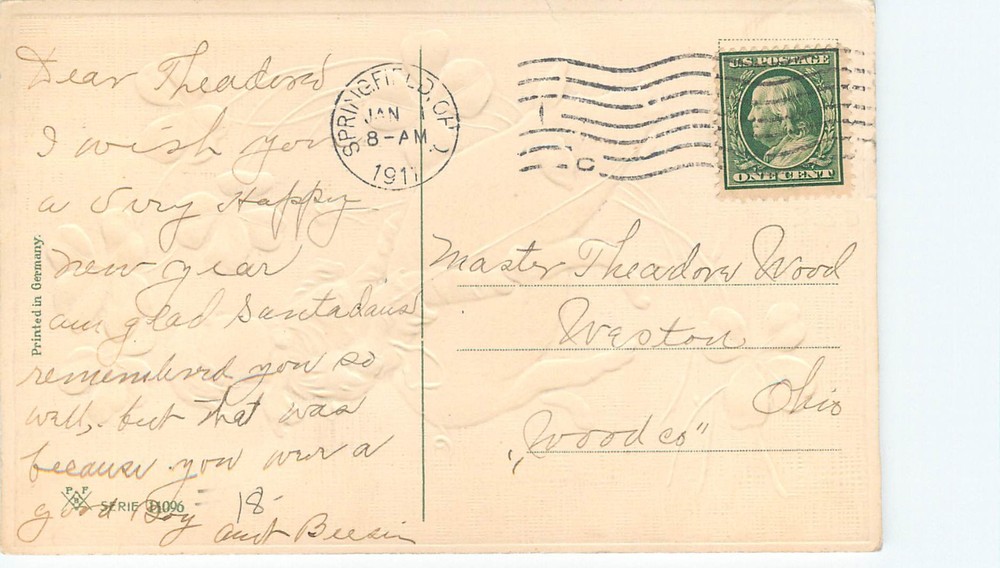 Dear Theadore
I wish you
a Very Happy
New year
am glad Santaclaus
remembered you so
well, but that was
because you wer a
good Boy
aunt
18
Printed in Germany.
P F B
SERIE 11096
SPRINGFIELD, O.
JAN 1
8-AM
1911
U.S. POSTAGE
ONE CENT
Master Theadore Wood
Weston
Ohio
"Wood co"